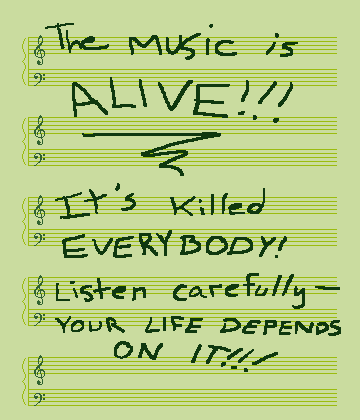 The MUSic is
ALIVE!!!
It's Killed
EVERYBODY!
Listen carefully—
YOUR LIFE DEPENDS
ON IT!!!